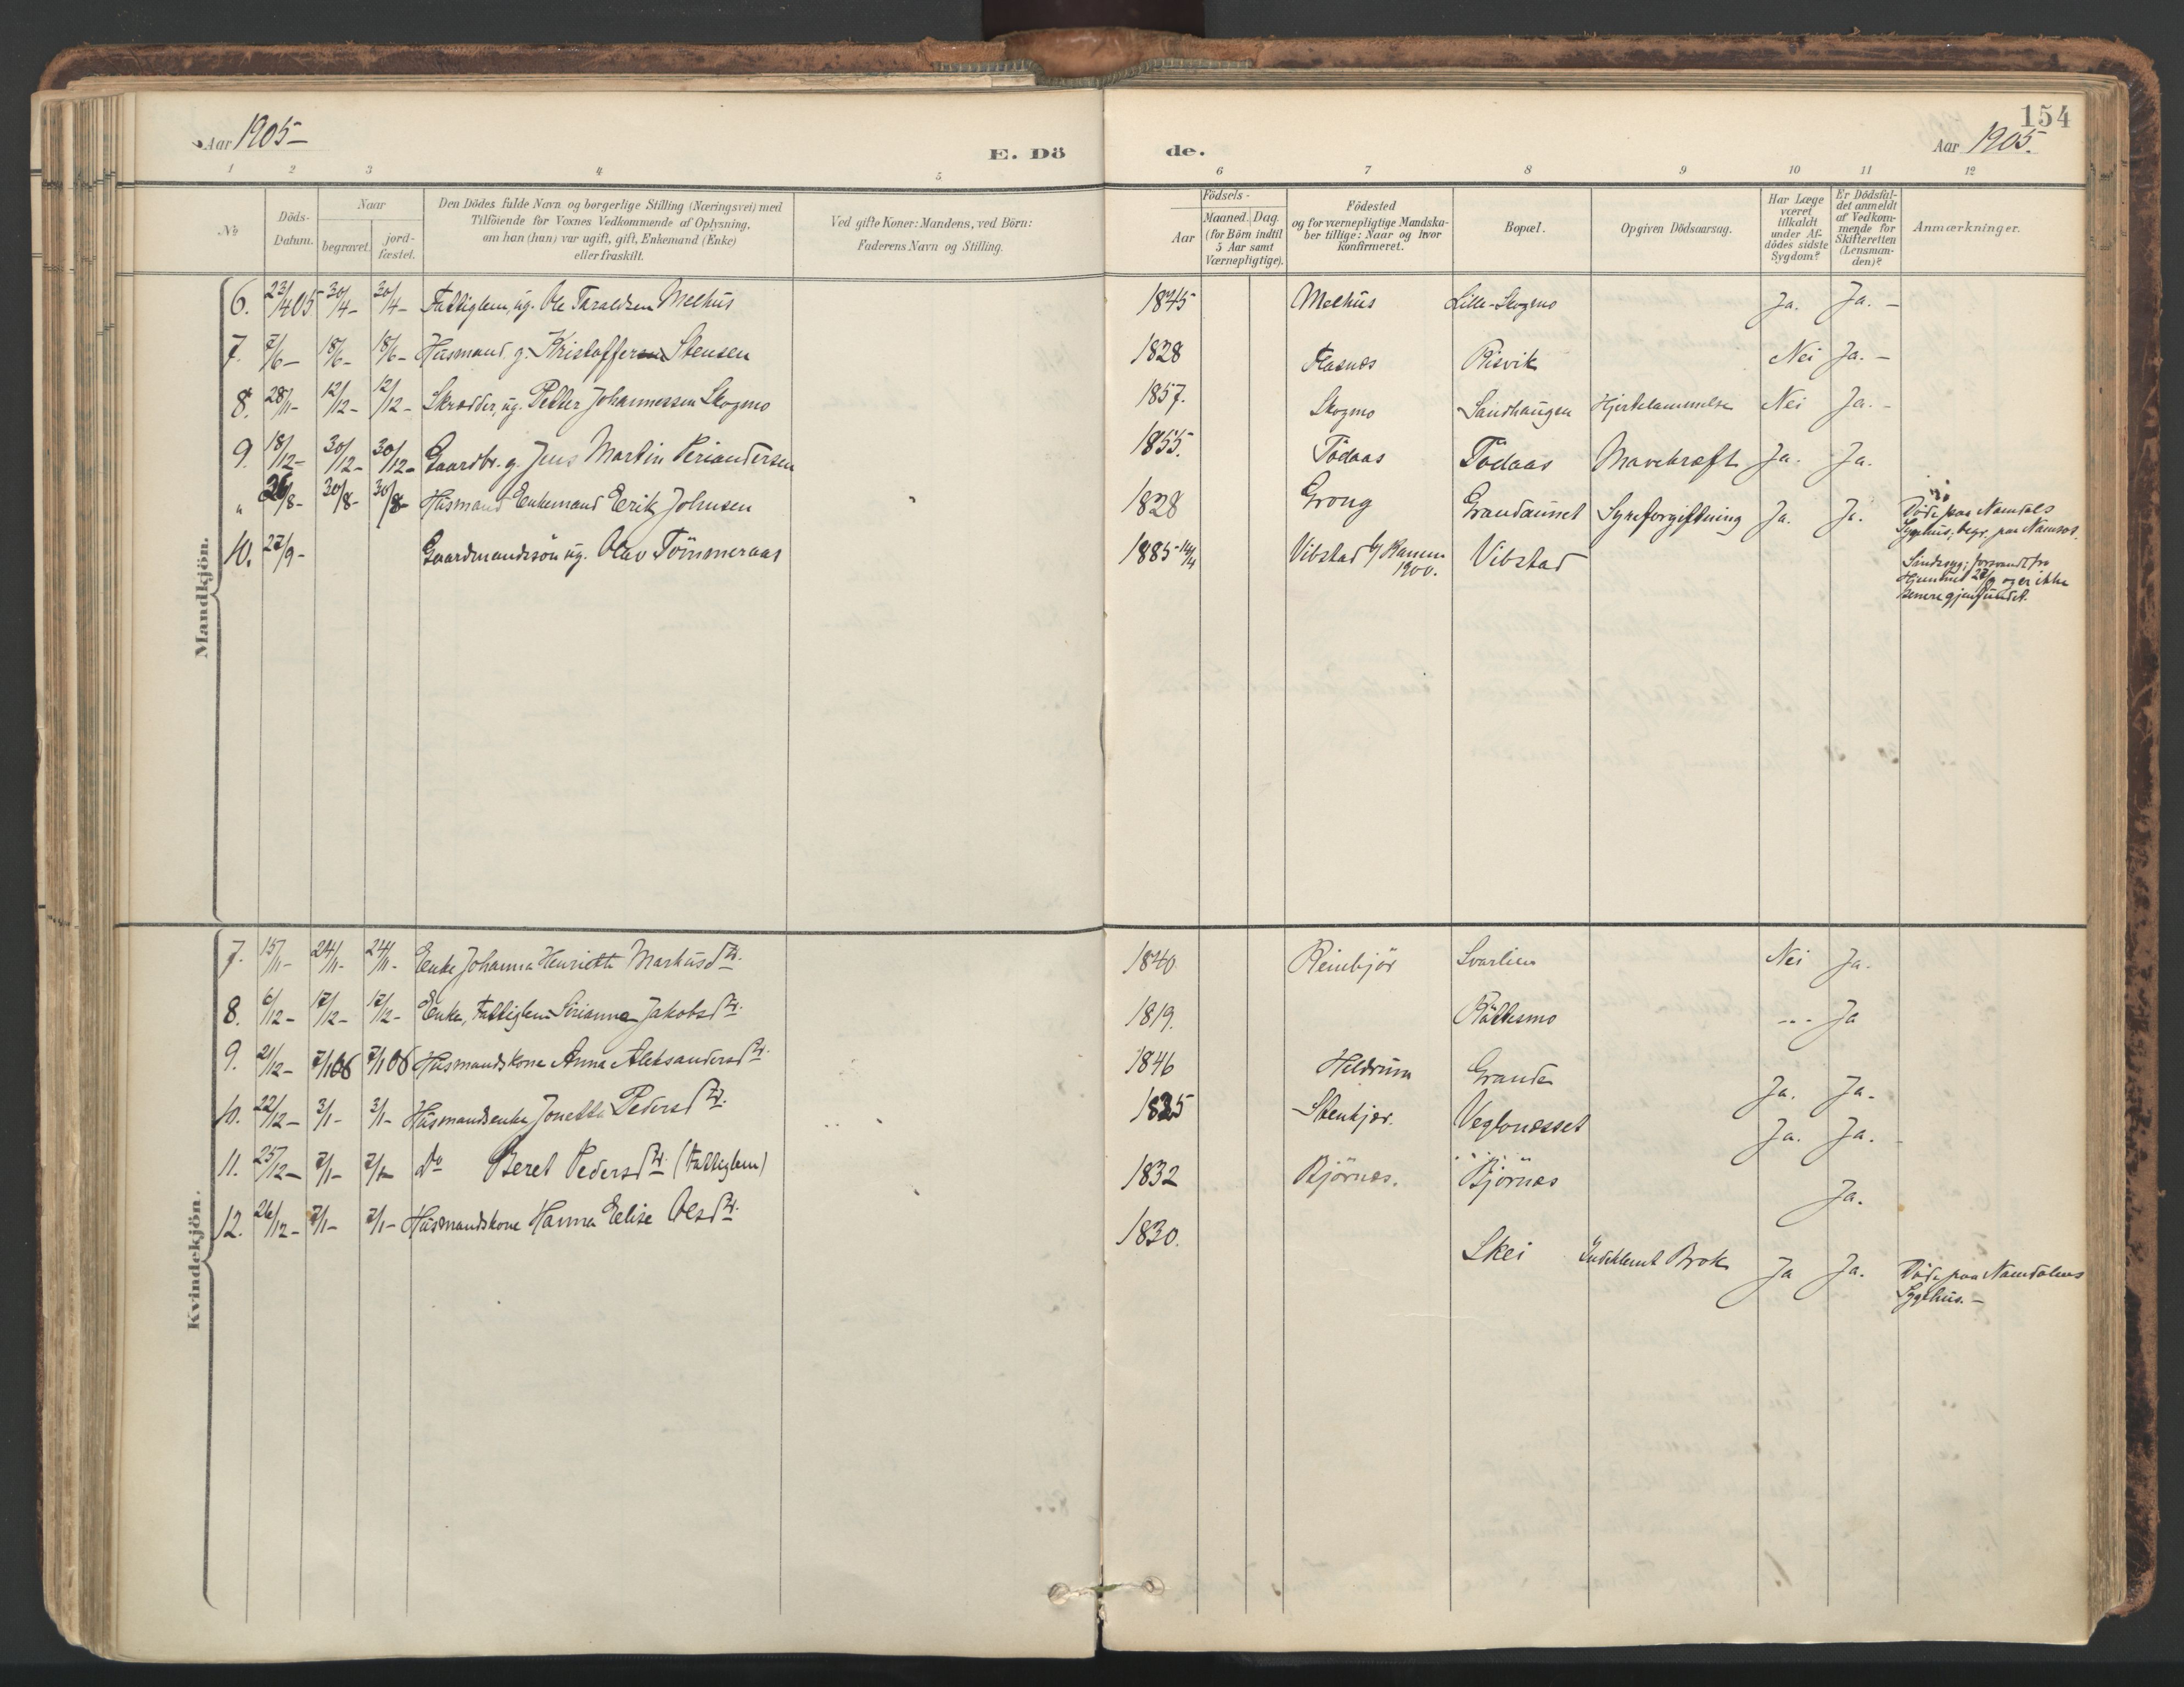 154
Aar 1905 –
E. Dö
de.
Aar 1905.
1 2 3 4 5 6 7 8 9 10 11 12
No
Döds-Datum.
Naar
begravet.
jord-fæstet.
Den Dödes fulde Navn og borgerlige Stilling (Næringsvei) med
Tilföiende for Voxnes Vedkommende af Oplysning,
om han (hun) var ugift, gift, Enkemand (Enke)
eller fraskilt.
Ved gifte Koner: Mandens, ved Börn:
Faderens Navn og Stilling.
Födsels-
Aar
Maaned. Dag.
(for Börn indtil
5 Aar samt
Værnepligtige).
Födested
og for værnepligtige Mandska-
ber tillige: Naar og hvor
konfirmeret.
Bopæl.
Opgiven Dödsaarsag.
Har Læge
været
tilkaldt
under Af-
dödes sidste
Sygdom?
Er Dödsfal-
det anmeldt
af Vedkom-
mende for
Skifteretten
(Lensman-
den)?
Anmærkninger.
Mandkjön.
6. 23/4 05 30/4 – 30/4 – Fattiglem, ug. Ole Taraldsen Melhus 1845 Melhus Lille-Skogmo Ja. Ja. –
7. 7/6 – 18/6 – 18/6 – Husmand. g. Kristoffer Stensen 1828 Flasnes Risvik Nei Ja. –
8. 28/11 – 12/12 – 12/12 – Skrædder, ug. Petter Johannessen Skogmo 1857. Skogmo Sandhaugen Hjertelammelse Nei Ja. –
9. 18/12 – 30/12 – 30/12 – Gaardbr. g. Jens Martin Periandersen 1855. Tödaas Tödaas Mavekræft Ja. Ja.
" 26/8 – 30/8 – 30/8 – Husmand Enkemand Eerik Johnsen 1828 Grong Grandaunet Syreforgiftning Ja. Ja. Döde paa Namdals
Sygehus; begr. paa Namsos.
10. 27/9 – Gaardmandssön ug. Olav Tömmeraas 1885 14/4 Vibstad k/ Ranem
1900. Vibstad Sindssyg; forsvandt fra
Hjemmet 27/9 og er ikke
senere gjenfundet.
Kvindekjön.
7. 15/11 – 24/11 – 24/11 – Enke Johanna Henriette Markusdtr. 1840. Reinbjör Svarlien Nei Ja.
8. 6/12 – 17/12 – 17/12 – Enke, Fattiglem Sirianna Jakobsdtr. 1819. Råttesmo - - - Ja
9. 21/12 – 7/1 06 7/1 06 Husmandskone Anna Aleksandersdtr. 1846 Heldrum Grande Ja. Ja.
10. 22/12 – 3/1 – 3/1 – Husmandsenke Jonetta Pedersdtr. 1825 Stenkjær. Veglonesset Ja. Ja.
11. 25/12 – 7/1 – 7/1 – Do Beret Pedersdtr. (Fattiglem) 1832 Björnes. Björnes Ja.
12. 26/12 – 7/1 – 7/1 – Husmandskone Hanna Elise Olsdtr. 1830. Skei Indeklemt Brok Ja Ja. Döde paa Namdalens
Sygehus. –